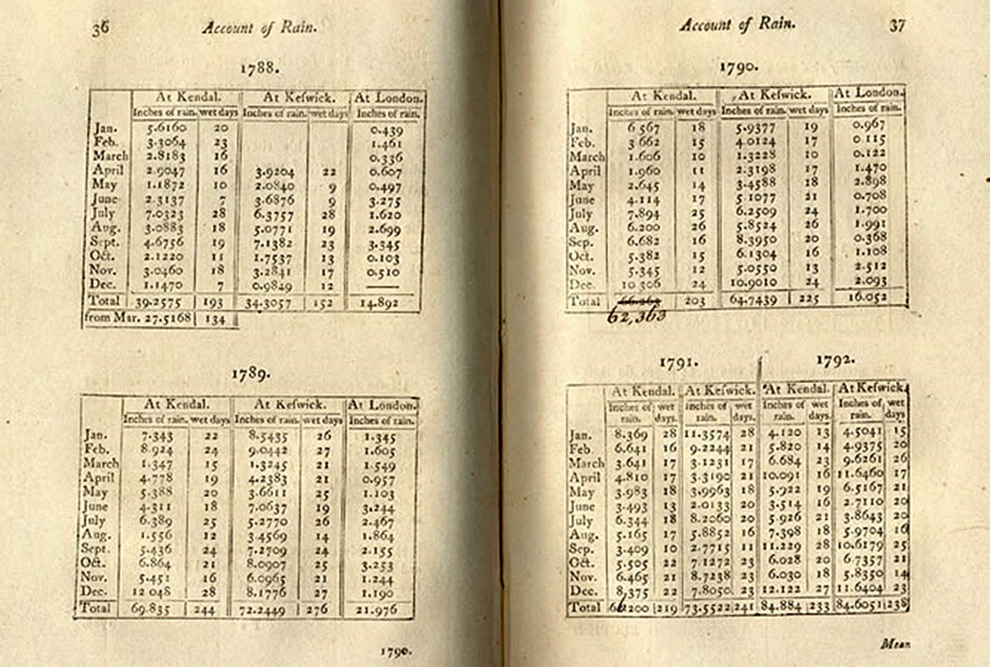 36 Account of Rain.
1788.
At Kendal. At Keſwick. At London.
Inches of rain. wet days Inches of rain. wet days Inches of rain.
Jan. 5.6160 20 0.439
Feb. 3.3064 23 1.461
March 2.8183 16 0.336
April 2.9047 16 3.9204 22 0.607
May 1.1872 10 2.0840 9 0.497
June 2.3137 7 3.6876 9 3.275
July 7.0323 28 6.3757 28 1.620
Aug. 3.0883 18 5.0771 19 2.699
Sept. 4.6756 19 7.1382 23 3.345
Oct. 2.1220 11 1.7537 13 0.103
Nov. 3.0460 18 3.2841 17 0.510
Dec. 1.1470 7 0.9849 12 ——
Total 39.2575 193 34.3057 152 14.892
from Mar. 27.5168 134
1789.
At Kendal. At Keſwick. At London.
Inches of rain. wet days Inches of rain. wet days Inches of rain.
Jan. 7.343 22 8.5435 26 1.345
Feb. 8.924 24 9.0442 27 1.605
March 1.347 15 1.3245 21 1.549
April 4.778 19 4.2383 21 0.957
May 5.388 20 3.6611 25 1.103
June 4.311 18 7.0637 19 3.244
July 6.389 25 5.2770 26 2.467
Aug. 1.556 12 3.4569 14 1.864
Sept. 5.436 24 7.2709 24 2.155
Oct. 6.864 21 8.0907 25 3.253
Nov. 5.451 16 6.0965 21 1.244
Dec. 12 048 28 8.1776 27 1.190
Total 69.835 244 72.2449 276 21.976
1790.
Account of Rain. 37
1790.
At Kendal. At Keſwick. At London.
Inches of rain. wet days Inches of rain. wet days Inches of rain.
Jan. 6 567 18 5.9377 19 0.967
Feb. 3 662 15 4.0124 17 0 115
March 1.606 10 1.3228 10 0.122
April 1.960 11 2.3198 17 1.470
May 2.645 14 3.4588 18 2.898
June 4.114 17 5.1077 21 0.708
July 7.894 25 6.2509 24 1.700
Aug. 6.200 26 5.8524 26 1.991
Sep. 6.682 16 8.3950 20 0.368
Oct. 5.382 15 6.1304 16 1.108
Nov. 5.345 12 5.0550 13 2.512
Dec. 10 306 24 10.9010 24 2.093
Total 203 64.7439 225 16.052
62,363
1791. 1792.
At Kendal. At Keſwick. At Kendal. At Keſwick.
Inches of wet Inches of wet Inches of wet Inches of wet
rain. days. rain. days. rain. days. rain. days
Jan. 8.369 28 11.3574 28 4.120 13 4.5041 15
Feb. 6.641 16 9.2244 21 5.820 14 4.9375 20
March 3.641 17 3.1231 17 6.684 23 9.6261 26
April 4.810 17 3.3190 21 10.091 16 11.6460 17
May 3.983 18 3.9963 18 5.922 19 6.5167 21
June 3.493 13 2.0133 20 3.514 16 2.7110 20
July 6.344 18 8.2060 20 5.926 21 3.8643 20
Aug. 5.165 17 5.8852 16 7.398 18 5.9704 16
Sep. 3.409 10 2.7715 11 11.229 28 10.6179 25
Oct. 5.505 22 7.1272 23 6.028 20 6.7357 21
Nov. 6.465 21 8.7238 23 6.030 18 5.8350 14
Dec. 8,375 22 7.8050 23 12.122 27 11.6404 23
Total 219 73.5522 241 84.884 233 84.6051 238
Mean